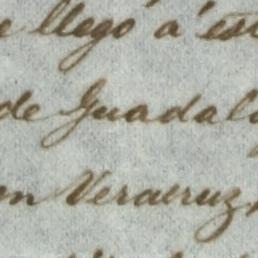 llegó á est
de Guadal
en Veracruz,